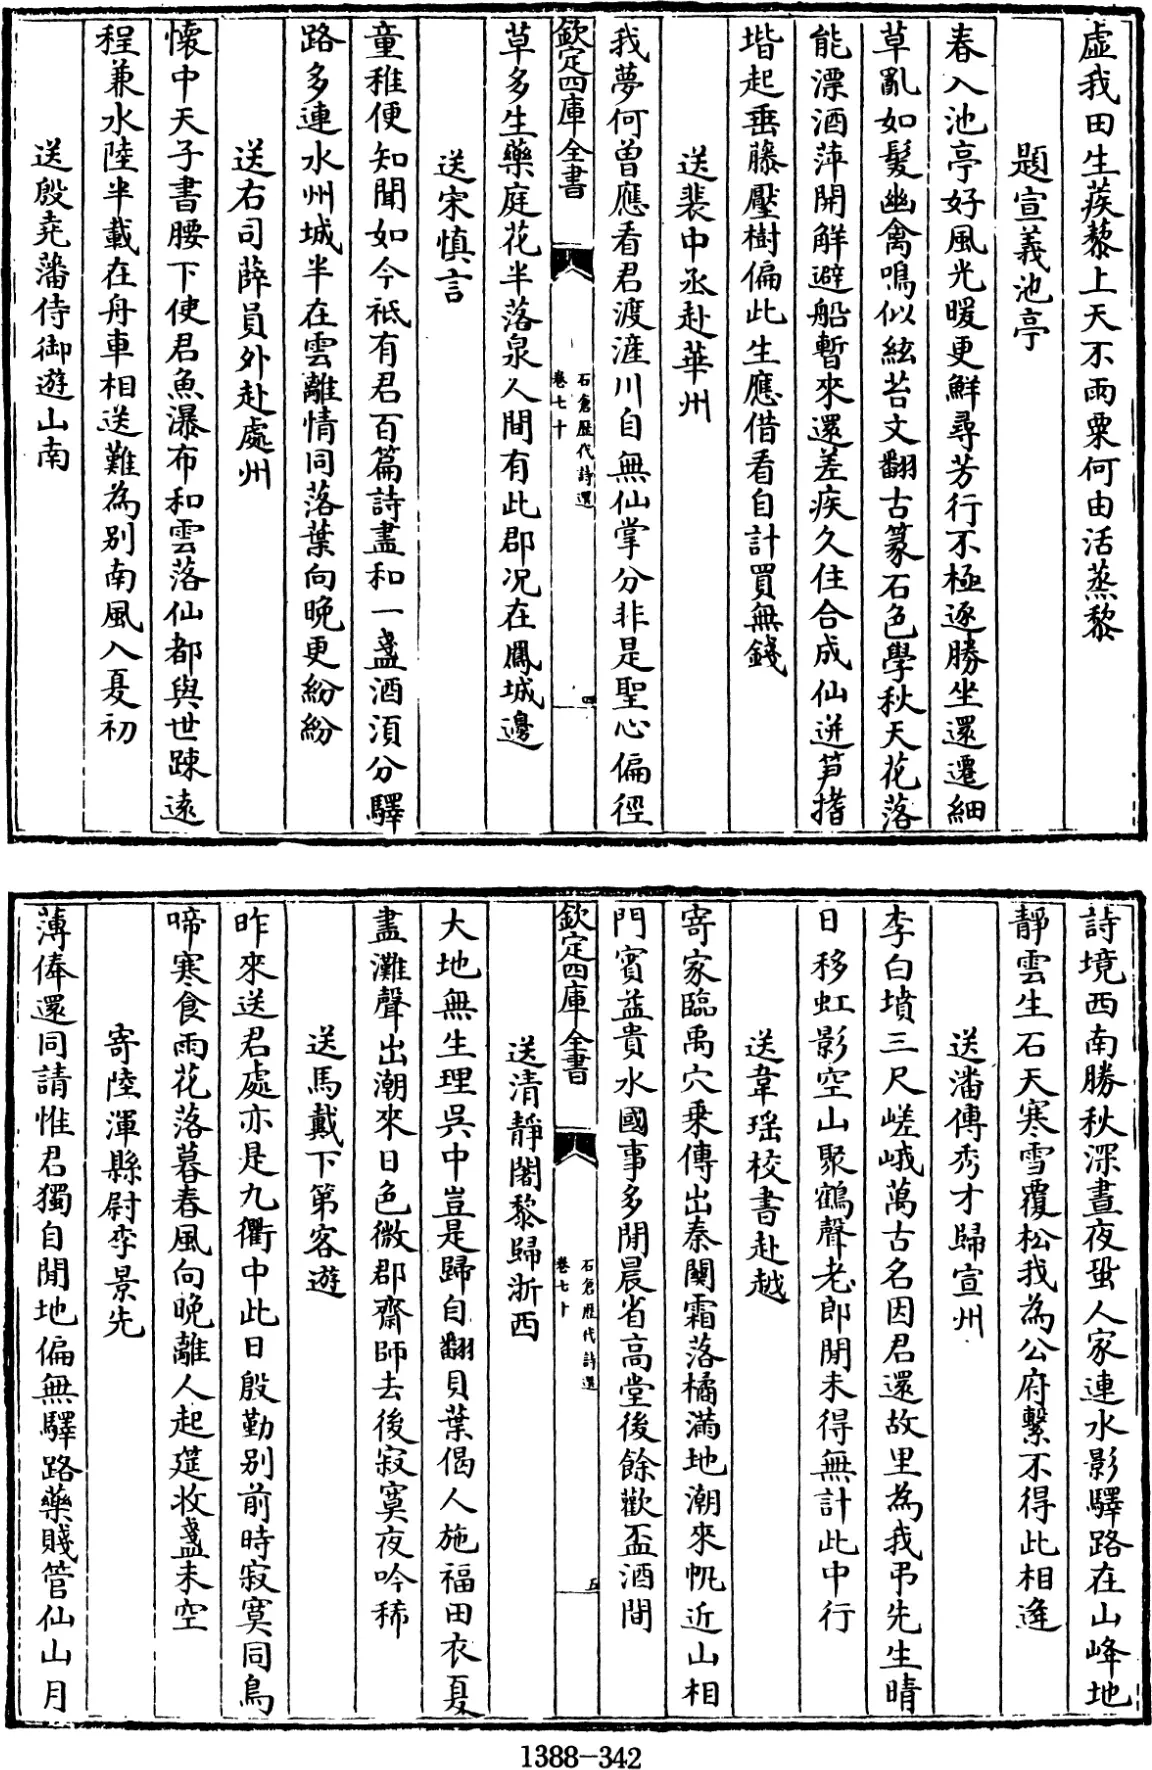 虛我田生蒺藜上天不雨粟何由活蒸黎
題宣義池亭
春入池亭好風光暖更鮮尋芳行不極逐勝坐還遷細
草亂如髮幽禽鳴似絃苔文翻古篆石色學秋天花落
能漂酒萍開解避船暫來還差疾久住合成仙迸笋揩
堦起垂藤壓樹偏此生應借看自計買無錢
送裴中丞赴華州
我夢何曾應看君渡滻川自無仙掌分非是聖心偏徑
欽定四庫全書
石倉歷代詩選
卷七十
四
草多生藥庭花半落泉人間有此郡況在鳳城邊
送宋慎言
童稚便知聞如今祗有君百篇詩盡和一盞酒湏分驛
路多連水州城半在雲離情同落葉向晚更紛紛
送右司薛員外赴處州
懷中天子書腰下使君魚瀑布和雲落仙都與世疎遠
程兼水陸半載在舟車相送難為別南風入夏初
送殷堯藩侍御遊山南
詩境西南勝秋深晝夜蛩人家連水影驛路在山峰地
靜雲生石天寒雪覆松我為公府繫不得此相逢
送潘傳秀才歸宣州
李白墳三尺嵯峨萬古名因君還故里為我弔先生晴
日移虹影空山聚鶴聲老郎閒未得無計此中行
送韋瑶校書赴越
寄家臨禹穴乘傳出秦關霜落橘滿地潮來帆近山相
門賓益貴水國事多閒晨省高堂後餘歡盃酒間
欽定四庫全書
石倉歷代詩選
卷七十
五
送清靜闍黎歸浙西
大地無生理吳中豈是歸自翻貝葉偈人施福田衣夏
盡灘聲出潮來日色微郡齋師去後寂寞夜吟稀
送馬戴下第客遊
昨來送君處亦是九衢中此日殷勤別前時寂寞同鳥
啼寒食雨花落暮春風向晚離人起筵收盞未空
寄陸渾縣尉李景先
薄俸還同請惟君獨自閒地偏無驛路藥賤管仙山月
1388-342